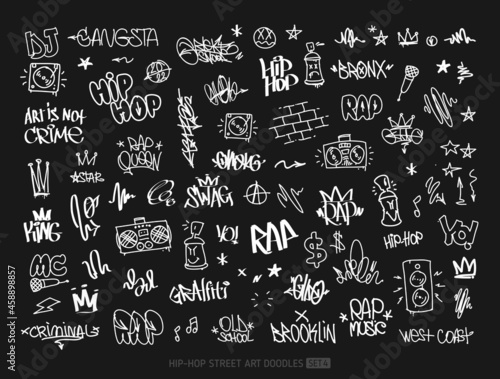 DJ
GANGSTA
HIP
HOP
HIP
HOP
BRONX
RAP
ART IS NOT
CRIME
RAP
QUEEN
STAR
SWAG
RAP
KING
YO!
RAP
HIP-HOP
YO!
MC
GRAFFITI
CRIMINAL
RAP
OLD
SCHOOL
BROOKLIN
RAP
MUSIC
WEST COAST
HIP-HOP STREET ART DOODLES SET4
Adobe Stock | #458898857